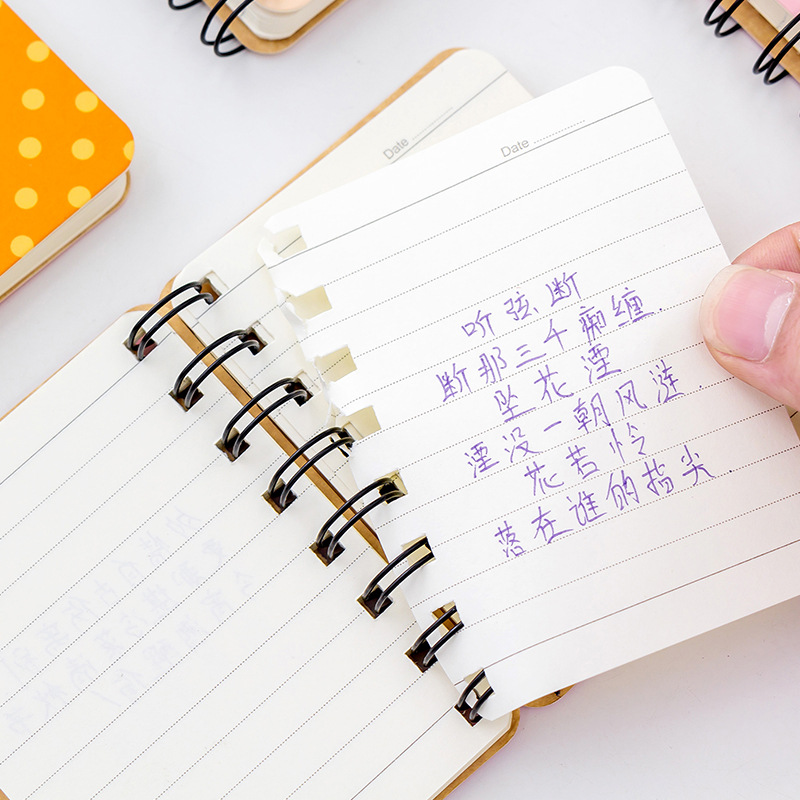 Date
Date
听弦断
断那三千痴缠.
坠花湮
湮没一朝风涟.
花若怜
落在谁的指尖.